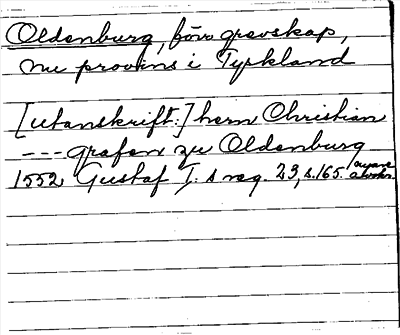 Oldenburg, förr grevskap,
nu provins i Tyskland
[utanskrift:] hern Christian
--- grafen zu Oldenburg
1552 Gustaf I:s reg. 23, s. 165.